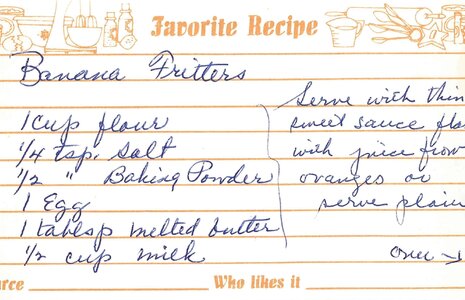 Favorite Recipe
Banana Fritters
1 cup flour
1/4 tsp. salt
1/2 " Baking Powder
1 Egg
1 tablsp melted butter
1/2 cup milk
Serve with thin
sweet sauce fla
with juice from
oranges or
serve plain
over →
urce Who likes it